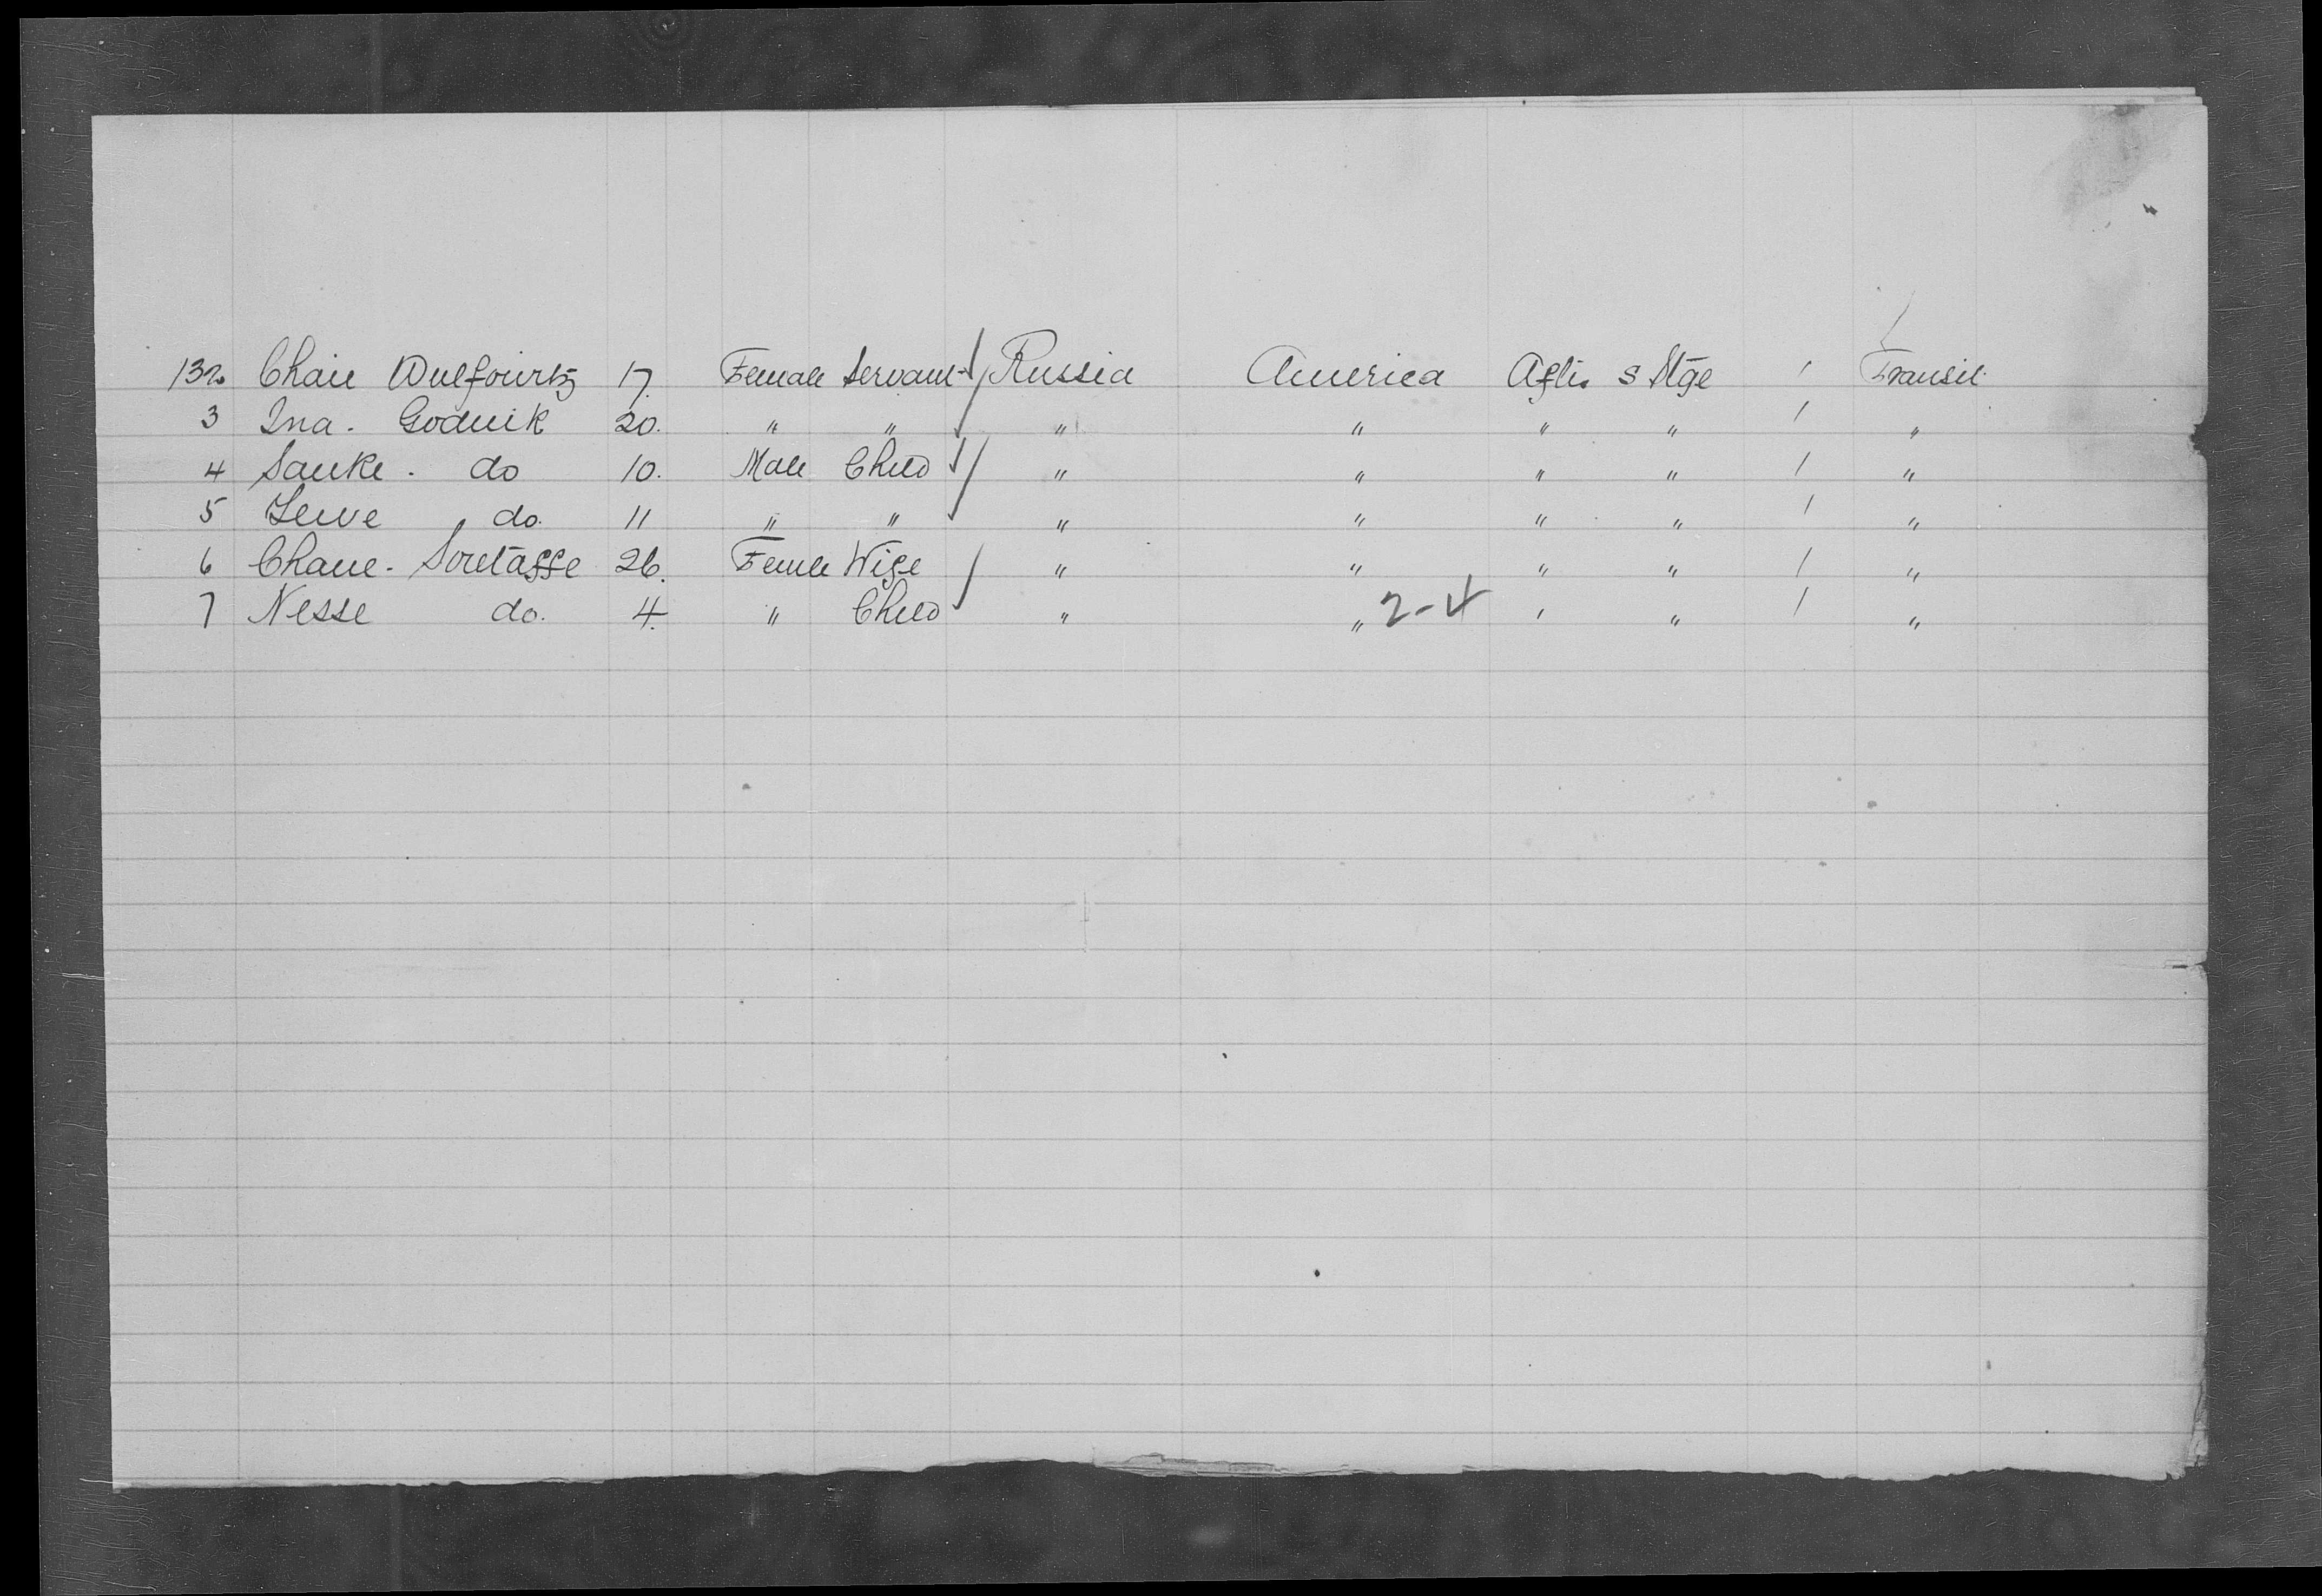 132 Chaie Wulfowitz 17. Female Servant Russia America Aftr. S Stge / Transit
3 Ina. Godnik 20. " " " " " " / "
4 Sauke. do 10. Male Child " " " " / "
5 Lewe do. 11 " " " " " " / "
6 Chane. Soretasse 26. Femle Wife " " " " / "
7 Nesse do. 4. " Child " " 2-4 ' " / "